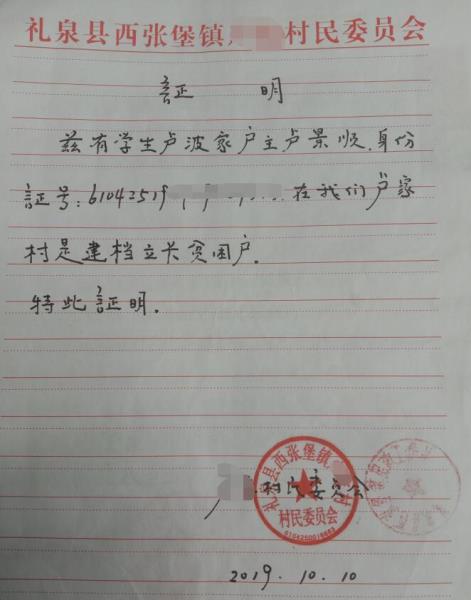 礼泉县西张堡镇 村民委员会
証 明
兹有学生卢波家户主卢景顺,身份
証号:61042519 在我们卢家
村是建档立卡贫困户。
特此証明.
村民委员会
礼泉县西张堡镇 村
村民委员会
2019.10.10